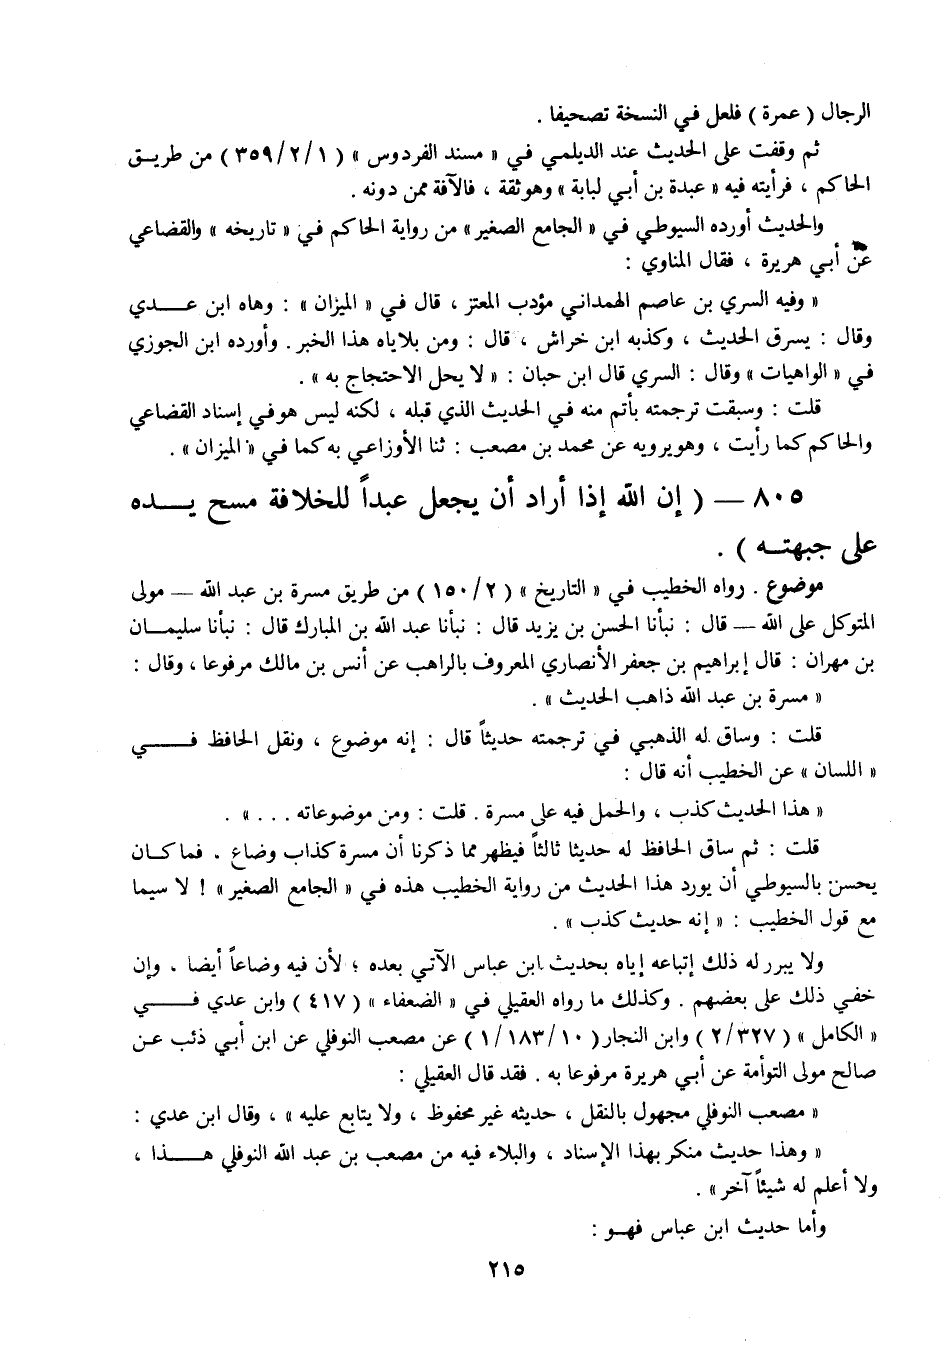 الرجال ( عمرة ) فلعل في النسخة تصحيفا .
ثم وقفت على الحديث عند الديلمي في « مسند الفردوس » ( ١/٢/٣٥٩ ) من طريق
الحاكم ، فرأيته فيه « عبدة بن أبي لبابة » وهو ثقة ، فالآفة ممن دونه .
والحديث أورده السيوطي في « الجامع الصغير » من رواية الحاكم في « تاريخه » والقضاعي
عن أبي هريرة ، فقال المناوي :
« وفيه السري بن عاصم الهمداني مؤدب المعتز ، قال في « الميزان » : وهاه ابن عــدي
وقال : يسرق الحديث ، وكذبه ابن خراش ، قال : ومن بلاياه هذا الخبر . وأورده ابن الجوزي
في « الواهيات » وقال : السري قال ابن حبان : « لا يحل الاحتجاج به » .
قلت : وسبقت ترجمته بأتم منه في الحديث الذي قبله ، لكنه ليس هو في إسناد القضاعي
والحاكم كما رأيت ، وهو يرويه عن محمد بن مصعب : ثنا الأوزاعي به كما في « الميزان » .
٨٠٥ — ( إن الله إذا أراد أن يجعل عبداً للخلافة مسح يــده
على جبهتــه ) .
موضوع . رواه الخطيب في « التاريخ » ( ٢/١٥٠ ) من طريق مسرة بن عبد الله — مولى
المتوكل على الله — قال : نبأنا الحسن بن يزيد قال : نبأنا عبد الله بن المبارك قال : نبأنا سليمــان
بن مهران : قال إبراهيم بن جعفر الأنصاري المعروف بالراهب عن أنس بن مالك مرفوعا ، وقال :
« مسرة بن عبد الله ذاهب الحديث » .
قلت : وساق له الذهبي في ترجمته حديثاً قال : إنه موضوع ، ونقل الحافظ فــي
« اللسان » عن الخطيب أنه قال :
« هذا الحديث كذب ، والحمل فيه على مسرة . قلت : ومن موضوعاته . . . » .
قلت : ثم ساق الحافظ له حديثا ثالثاً فيظهر مما ذكرنا أن مسرة كذاب وضاع . فما كــان
يحسن بالسيوطي أن يورد هذا الحديث من رواية الخطيب هذه في « الجامع الصغير » ! لا سيما
مع قول الخطيب : « إنه حديث كذب » .
ولا يبرر له ذلك إتباعه إياه بحديث ابن عباس الآتي بعده ؛ لأن فيه وضاعاً أيضا . وإن
خفي ذلك على بعضهم . وكذلك ما رواه العقيلي في « الضعفاء » ( ٤١٧ ) وابن عدي فــي
« الكامل » ( ٣٢٧/٢ ) وابن النجار ( ١٠/١٨٣/١ ) عن مصعب النوفلي عن ابن أبي ذئب عــن
صالح مولى التوأمة عن أبي هريرة مرفوعا به . فقد قال العقيلي :
« مصعب النوفلي مجهول بالنقل ، حديثه غير محفوظ ، ولا يتابع عليه » ، وقال ابن عدي :
« وهذا حديث منكر بهذا الإسناد ، والبلاء فيه من مصعب بن عبد الله النوفلي هــذا ،
ولا أعلم له شيئاً آخر » .
وأما حديث ابن عباس فهــو :
٢١٥